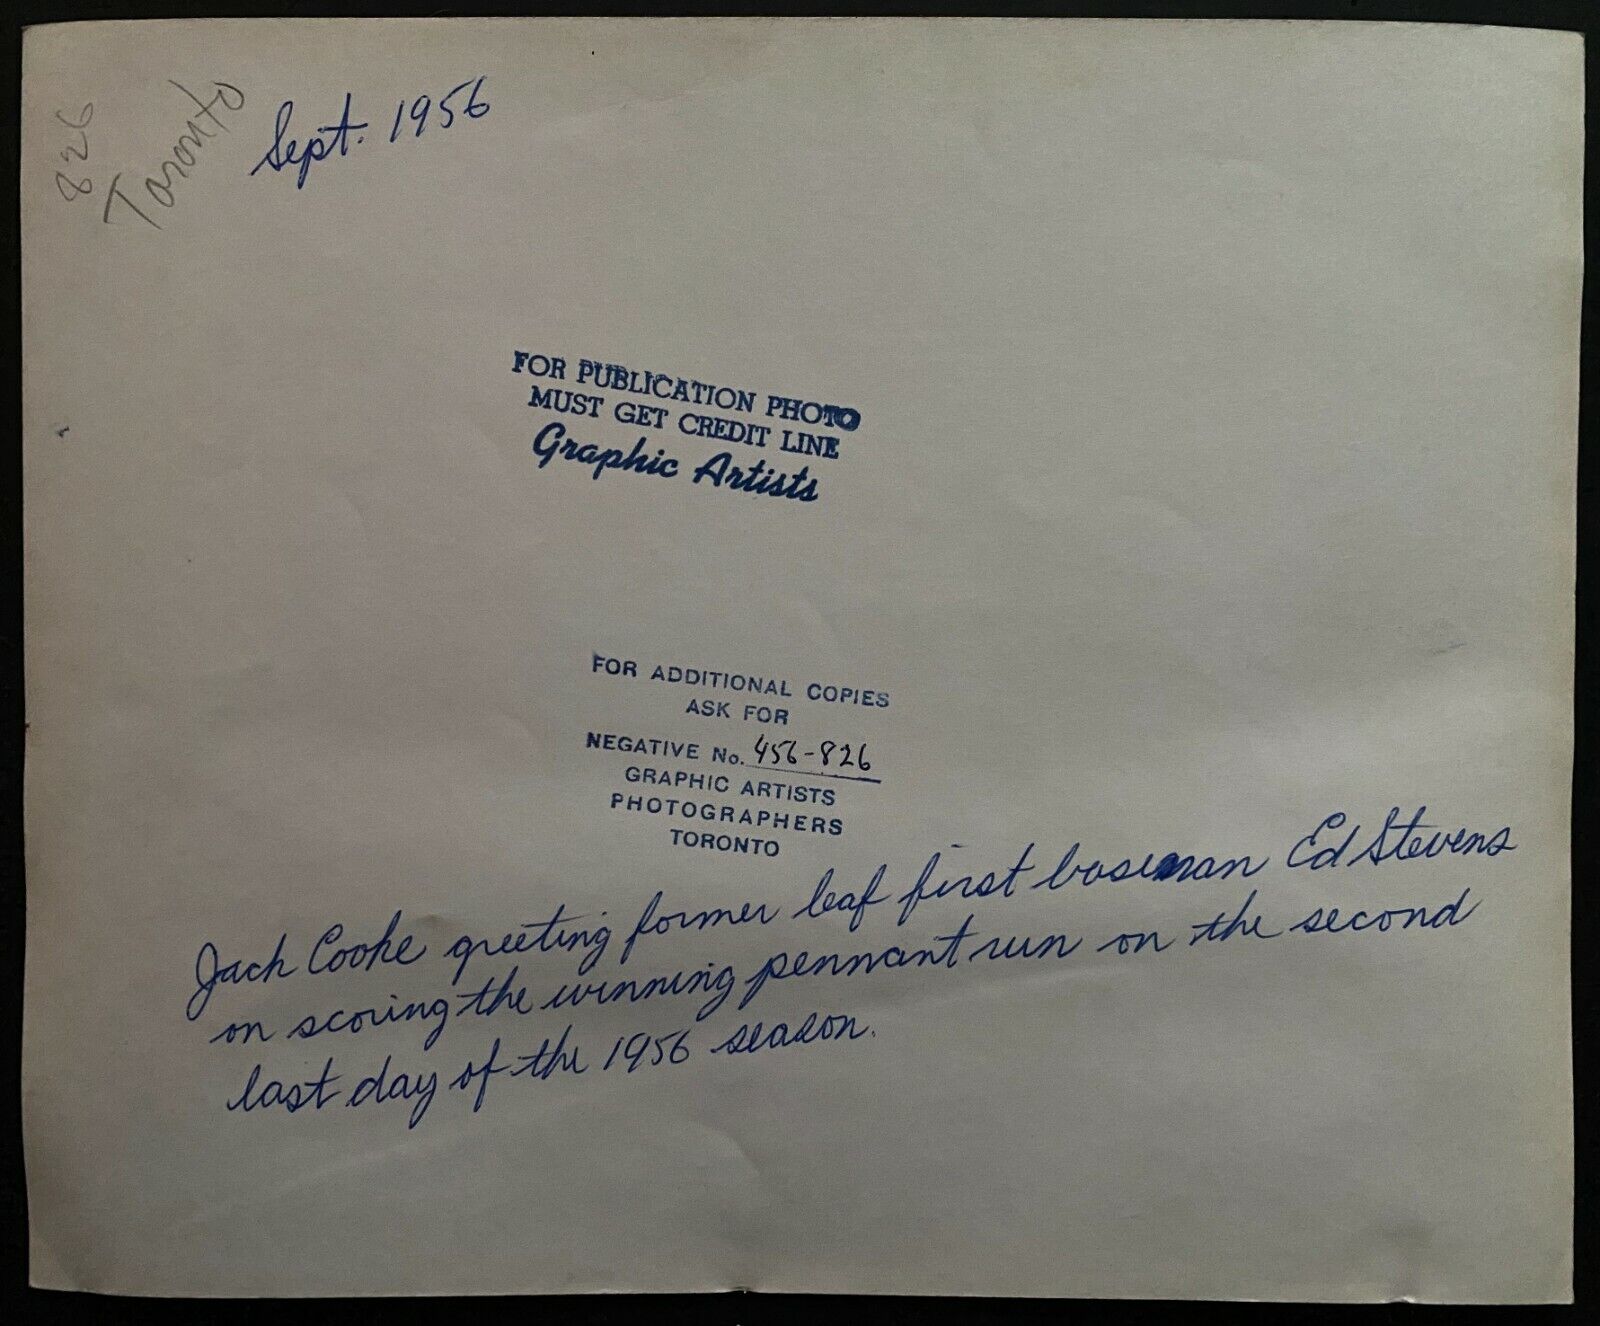 826
Toronto
Sept. 1956
FOR PUBLICATION PHOTO
MUST GET CREDIT LINE
Graphic Artists
FOR ADDITIONAL COPIES
ASK FOR
NEGATIVE No. 456-826
GRAPHIC ARTISTS
PHOTOGRAPHERS
TORONTO
Jack Cooke greeting former leaf first baseman Ed Stevens
on scoring the winning pennant run on the second
last day of the 1956 season.